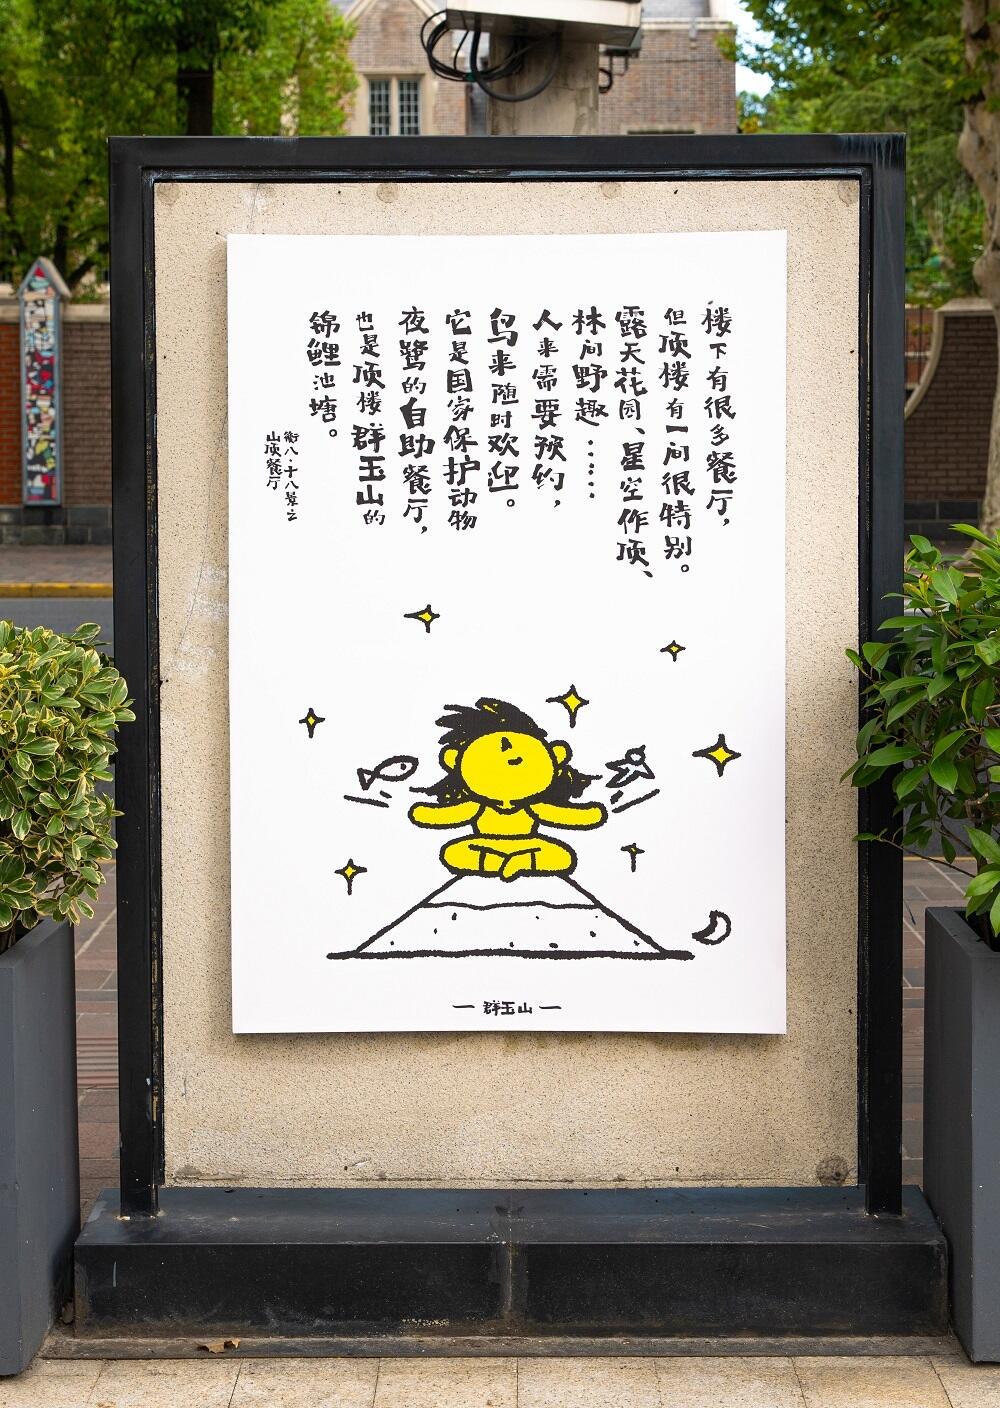 楼下有很多餐厅，
但顶楼有一间很特别。
露天花园、星空作顶、
林间野趣……
人来需要预约，
鸟来随时欢迎。
它是国家保护动物
夜鹭的自助餐厅，
也是顶楼群玉山的
锦鲤池塘。
衖八·十八景之
山顶餐厅
— 群玉山 —